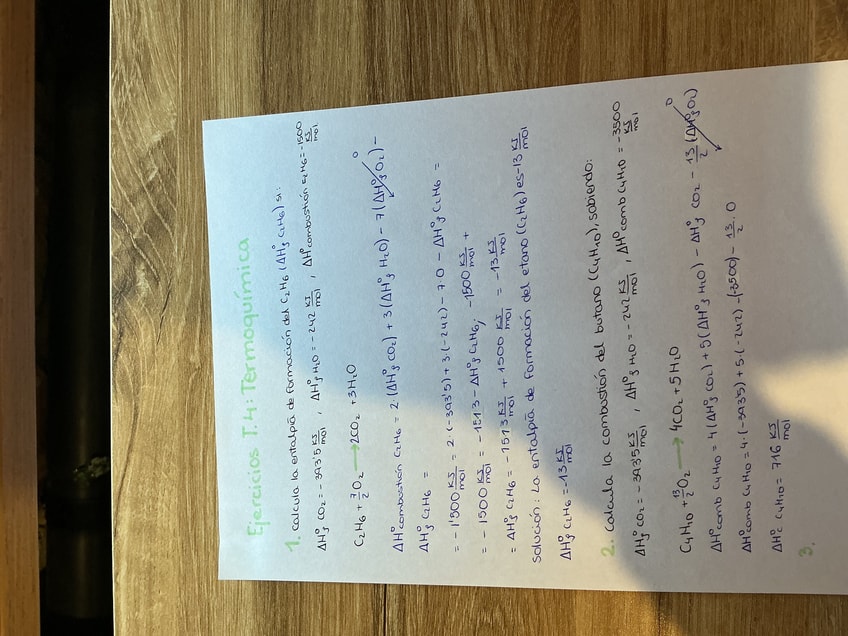 Ejercicios T.4: Termoquímica
1. Calcula la entalpía de formación del C₂H₆ (ΔH°f C₂H₆) si:
ΔH°f CO₂ = -393'5 KJ/mol , ΔH°f H₂O = -242 KJ/mol , ΔH°combustión C₂H₆ = -1500 KJ/mol.
C₂H₆ + 7/2 O₂ ⟶ 2CO₂ + 3H₂O
ΔH°combustión C₂H₆ = 2·(ΔH°f CO₂) + 3(ΔH°f H₂O) - 7(ΔH°f O₂) - 0
ΔH°f C₂H₆ =
= -1'500 KJ/mol = 2·(-393'5) + 3·(-242) - 7·0 - ΔH°f C₂H₆ =
= -1500 KJ/mol = -1513 - ΔH°f C₂H₆; -1500 KJ/mol +
= ΔH°f C₂H₆ = -1513 KJ/mol + 1500 KJ/mol = -13 KJ/mol
Solución: La entalpía de formación del etano (C₂H₆) es -13 KJ/mol
ΔH°f C₂H₆ = -13 KJ/mol
2. Calcula la combustión del butano (C₄H₁₀), sabiendo:
ΔH°f CO₂ = -393'5 KJ/mol , ΔH°f H₂O = -242 KJ/mol , ΔH°comb C₄H₁₀ = -3500 KJ/mol
C₄H₁₀ + 13/2 O₂ ⟶ 4CO₂ + 5H₂O
ΔH°comb C₄H₁₀ = 4(ΔH°f CO₂) + 5(ΔH°f H₂O) - ΔH°f CO₂ - 13/2 (ΔH°f O₂) 0
ΔH°comb C₄H₁₀ = 4·(-393'5) + 5·(-242) - (-3500) - 13/2 · 0
ΔH°c C₄H₁₀ = 716 KJ/mol
3.